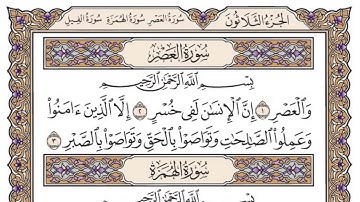 الجزء الثلاثون
سورة العصر سورة الهمزة سورة الفيل
سُورَةُ الْعَصْرِ
بِسْمِ اللَّهِ الرَّحْمَٰنِ الرَّحِيمِ
وَالْعَصْرِ ١ إِنَّ الْإِنسَٰنَ لَفِى خُسْرٍ ٢ إِلَّا الَّذِينَ ءَامَنُوا۟
وَعَمِلُوا۟ الصَّٰلِحَٰتِ وَتَوَاصَوْا۟ بِالْحَقِّ وَتَوَاصَوْا۟ بِالصَّبْرِ ٣
سُورَةُ الْهُمَزَةِ
بِسْمِ اللَّهِ الرَّحْمَٰنِ الرَّحِيمِ